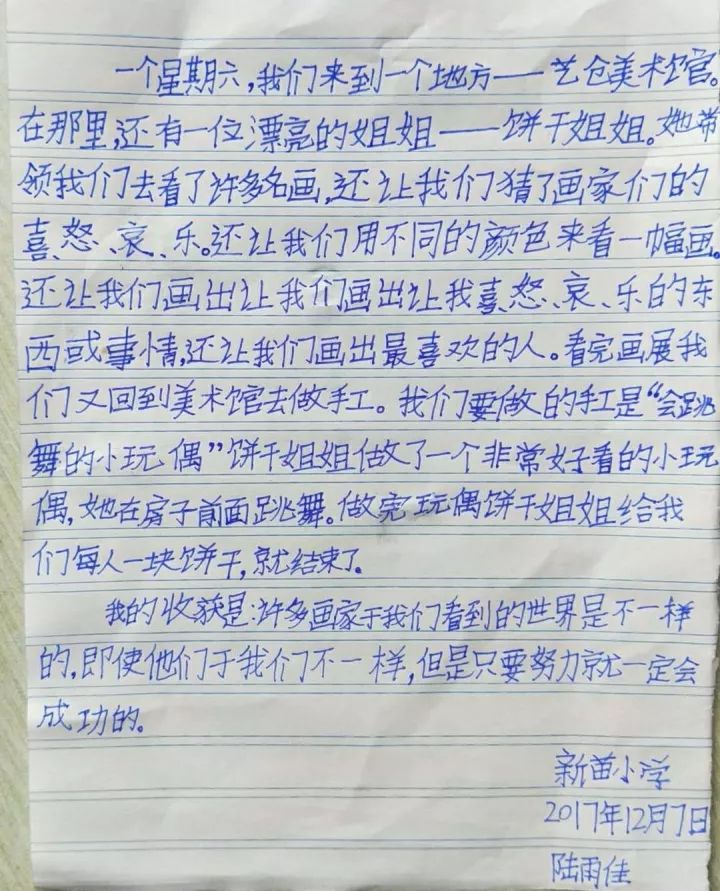 一个星期六,我们来到一个地方——艺仓美术馆。
在那里,还有一位漂亮的姐姐——饼干姐姐。她带
领我们去看了许多名画,还让我们猜了画家们的
喜、怒、哀、乐。还让我们用不同的颜色来看一幅画。
还让我们画出让我们画出让我喜、怒、哀、乐的东
西或事情,还让我们画出最喜欢的人。看完画展我
们又回到美术馆去做手工。我们要做的手工是“会跳
舞的小玩偶”饼干姐姐做了一个非常好看的小玩
偶,她在房子前面跳舞。做完玩偶饼干姐姐给我
们每人一块饼干,就结束了。
我的收获是:许多画家于我们看到的世界是不一样
的,即使他们于我们不一样,但是只要努力就一定会
成功的。
新苗小学
2017年12月7日
陆雨佳